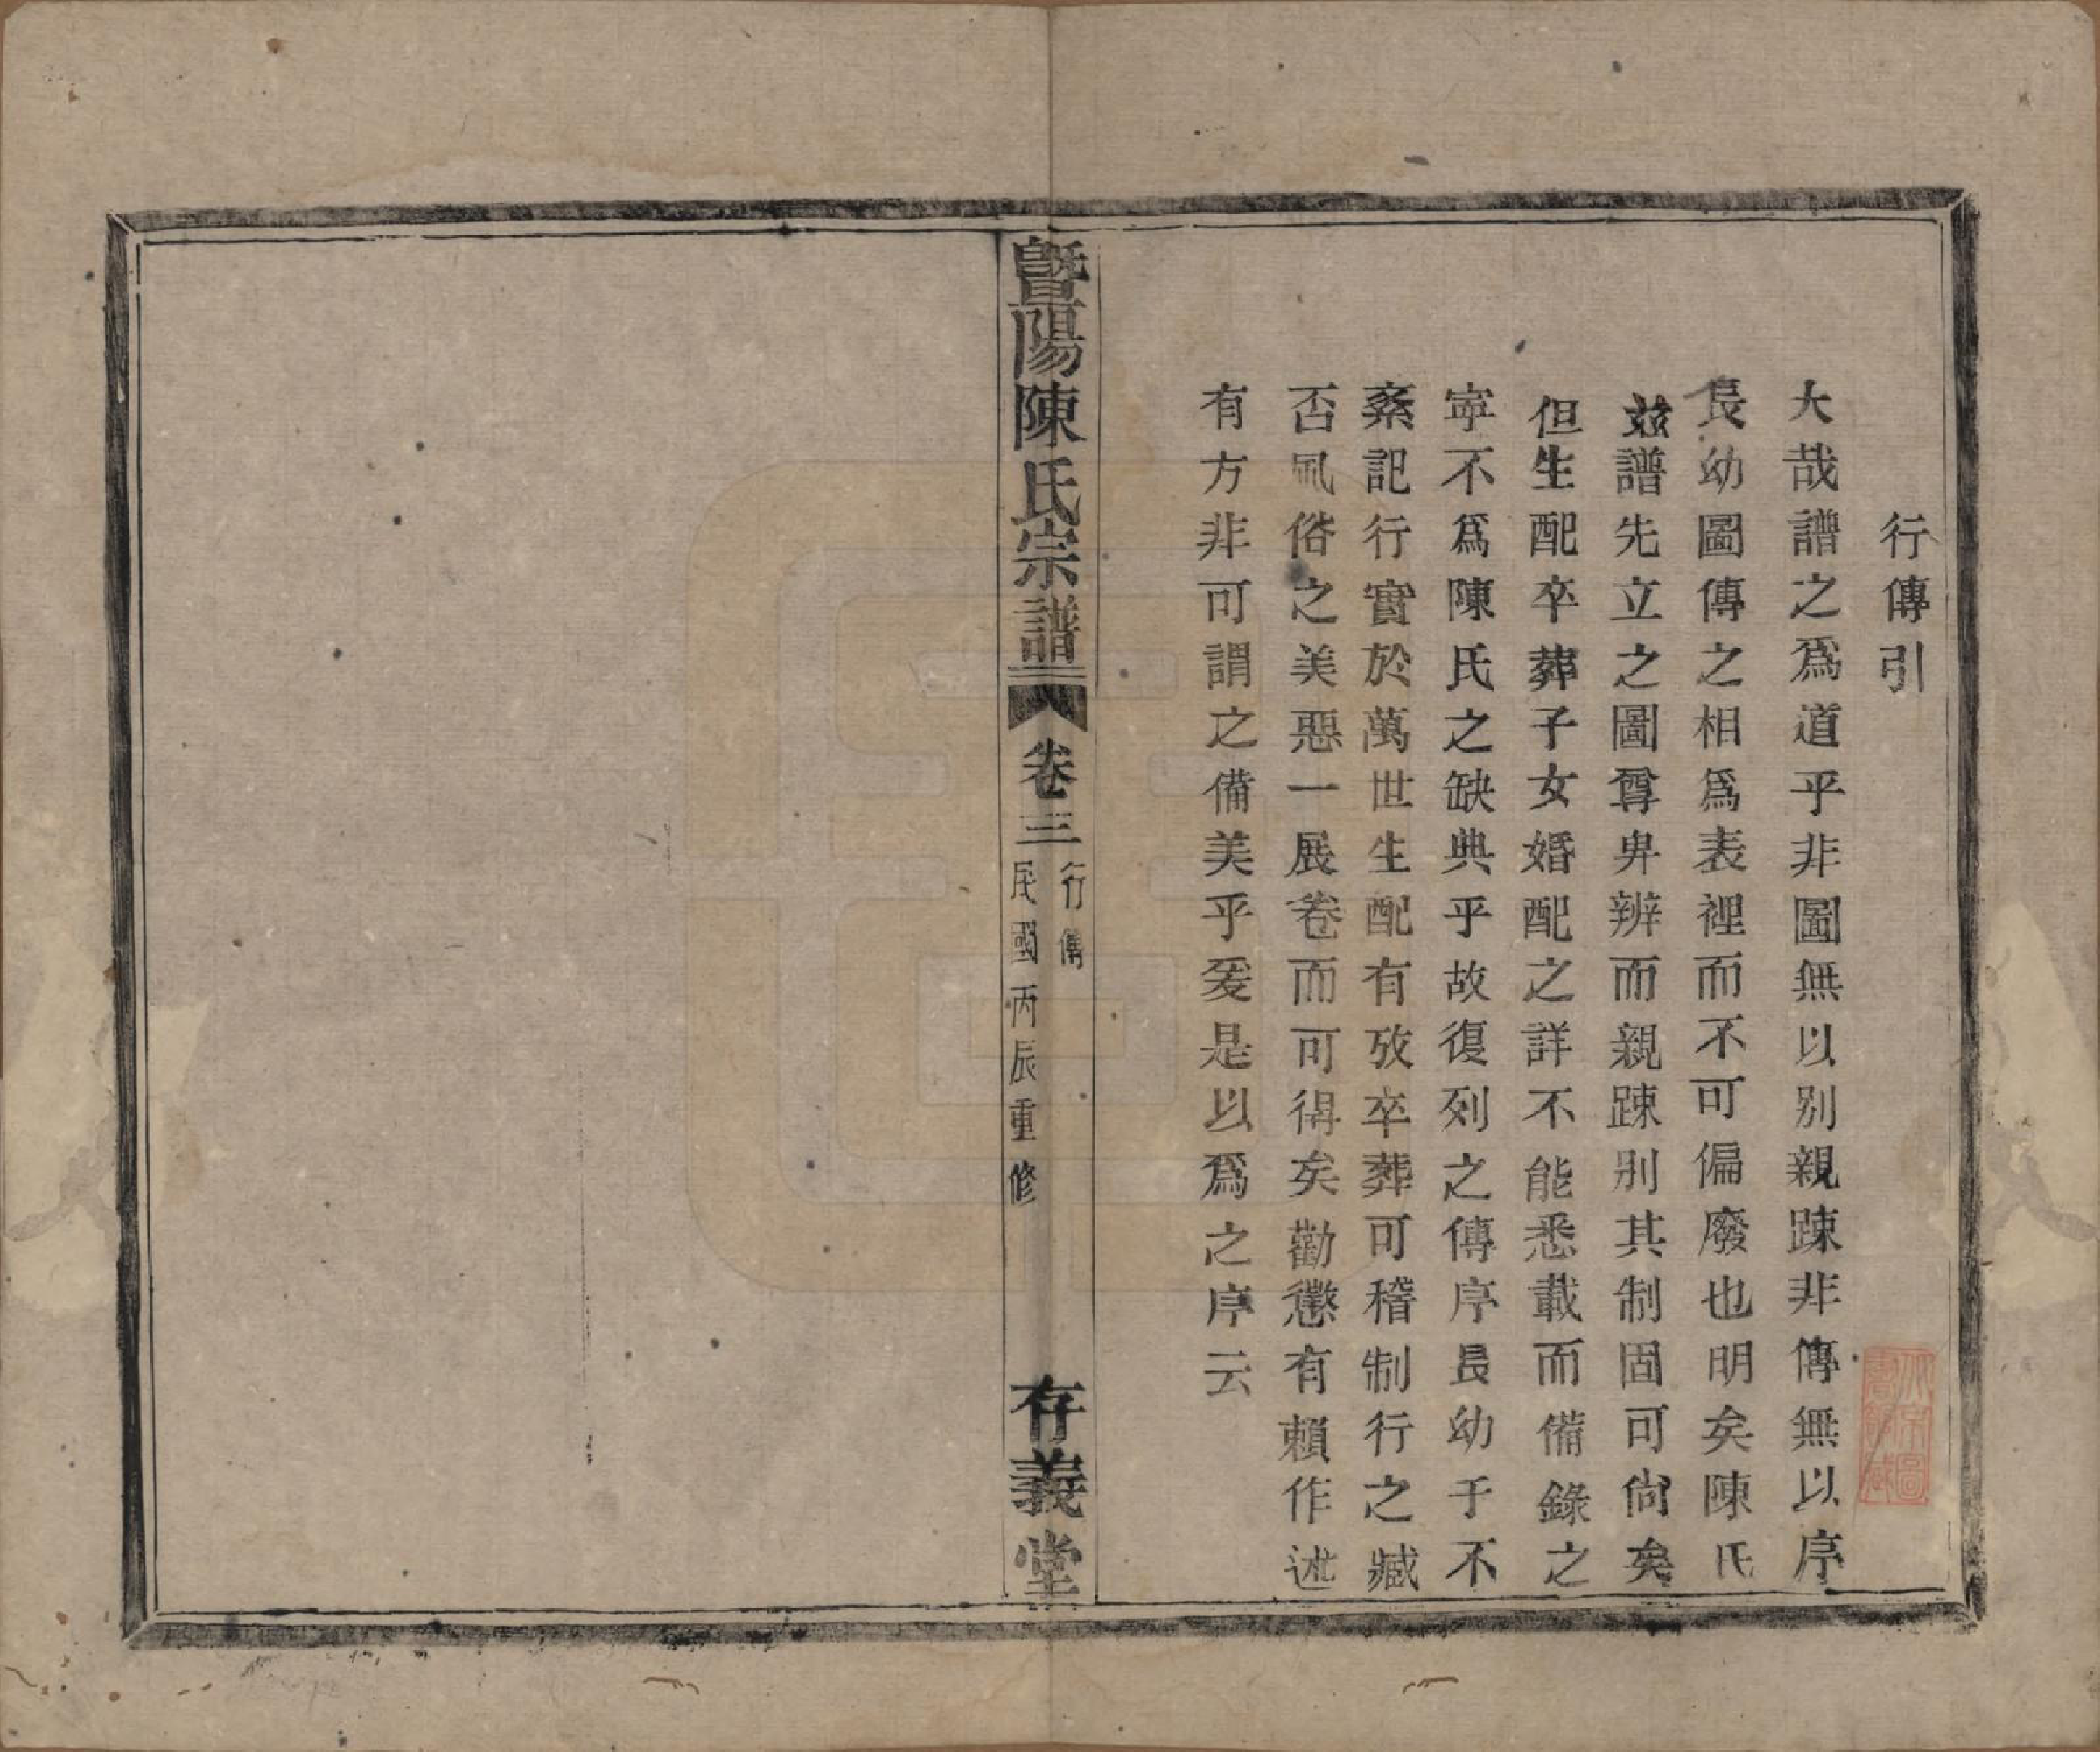 行傳引
大哉譜之爲道乎非圖無以別親踈非傳無以序
長幼圖傳之相爲表裡而不可偏廢也明矣陳氏
兹譜先立之圖尊卑辨而親踈別其制固可尙矣
但生配卒葬子女婚配之詳不能悉載而備錄之
寜不爲陳氏之缺典乎故復列之傳序長幼于不
紊記行實於萬世生配有攷卒葬可稽制行之臧
否風俗之美惡一展卷而可得矣勸懲有賴作述
有方非可謂之備美乎爰是以爲之序云
暨陽陳氏宗譜
卷三
行傳
民國丙辰重修
存義堂